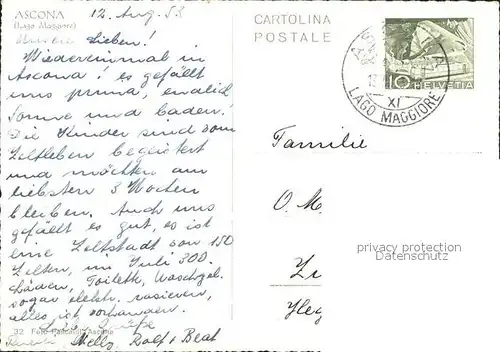 ASCONA
(Lago Maggiore)
12. Aug. 53
Unsere Lieben!
Wiedereinmal in
Ascona! es gefällt
uns prima, endlich
Sonne und baden!
Die Kinder sind vom
Zeltleben begeistert
und möchten am
liebsten 3 Wochen
bleiben. Auch uns
gefällt es gut, es ist
eine Zeltstadt von 150
Zelten, im Juli 300.
Läden, Toilette, Waschgel.
sogar elektr. rasieren,
alles ist vorhanden.
Grüsse
Nelly, Rolf + Beat
32 Foto Ascona
CARTOLINA
POSTALE
10 HELVETIA
XI
LAGO MAGGIORE
Familie
O. M
privacy protection
Datenschutz
Zr
Hleg